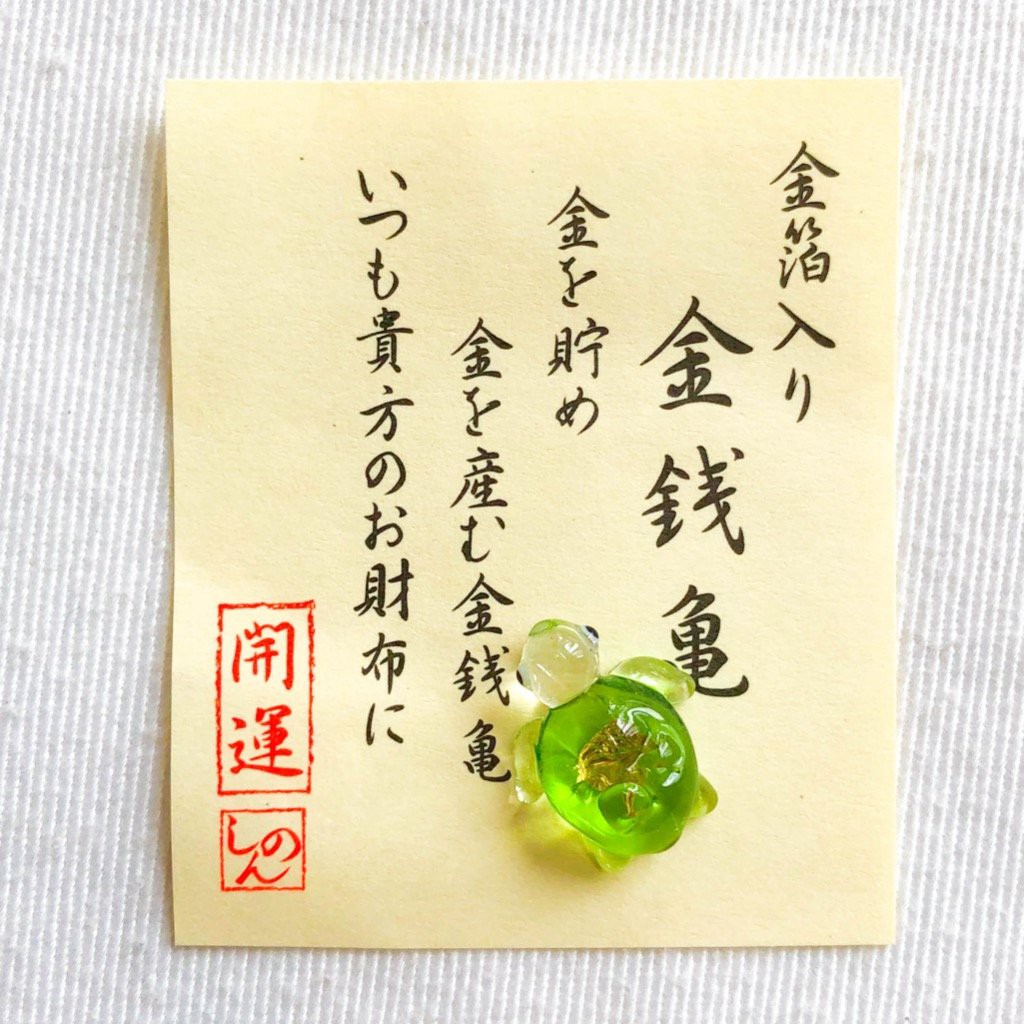 金箔入り
金銭亀
金を貯め
金を産む金銭亀
いつも貴方のお財布に
開運
しのん